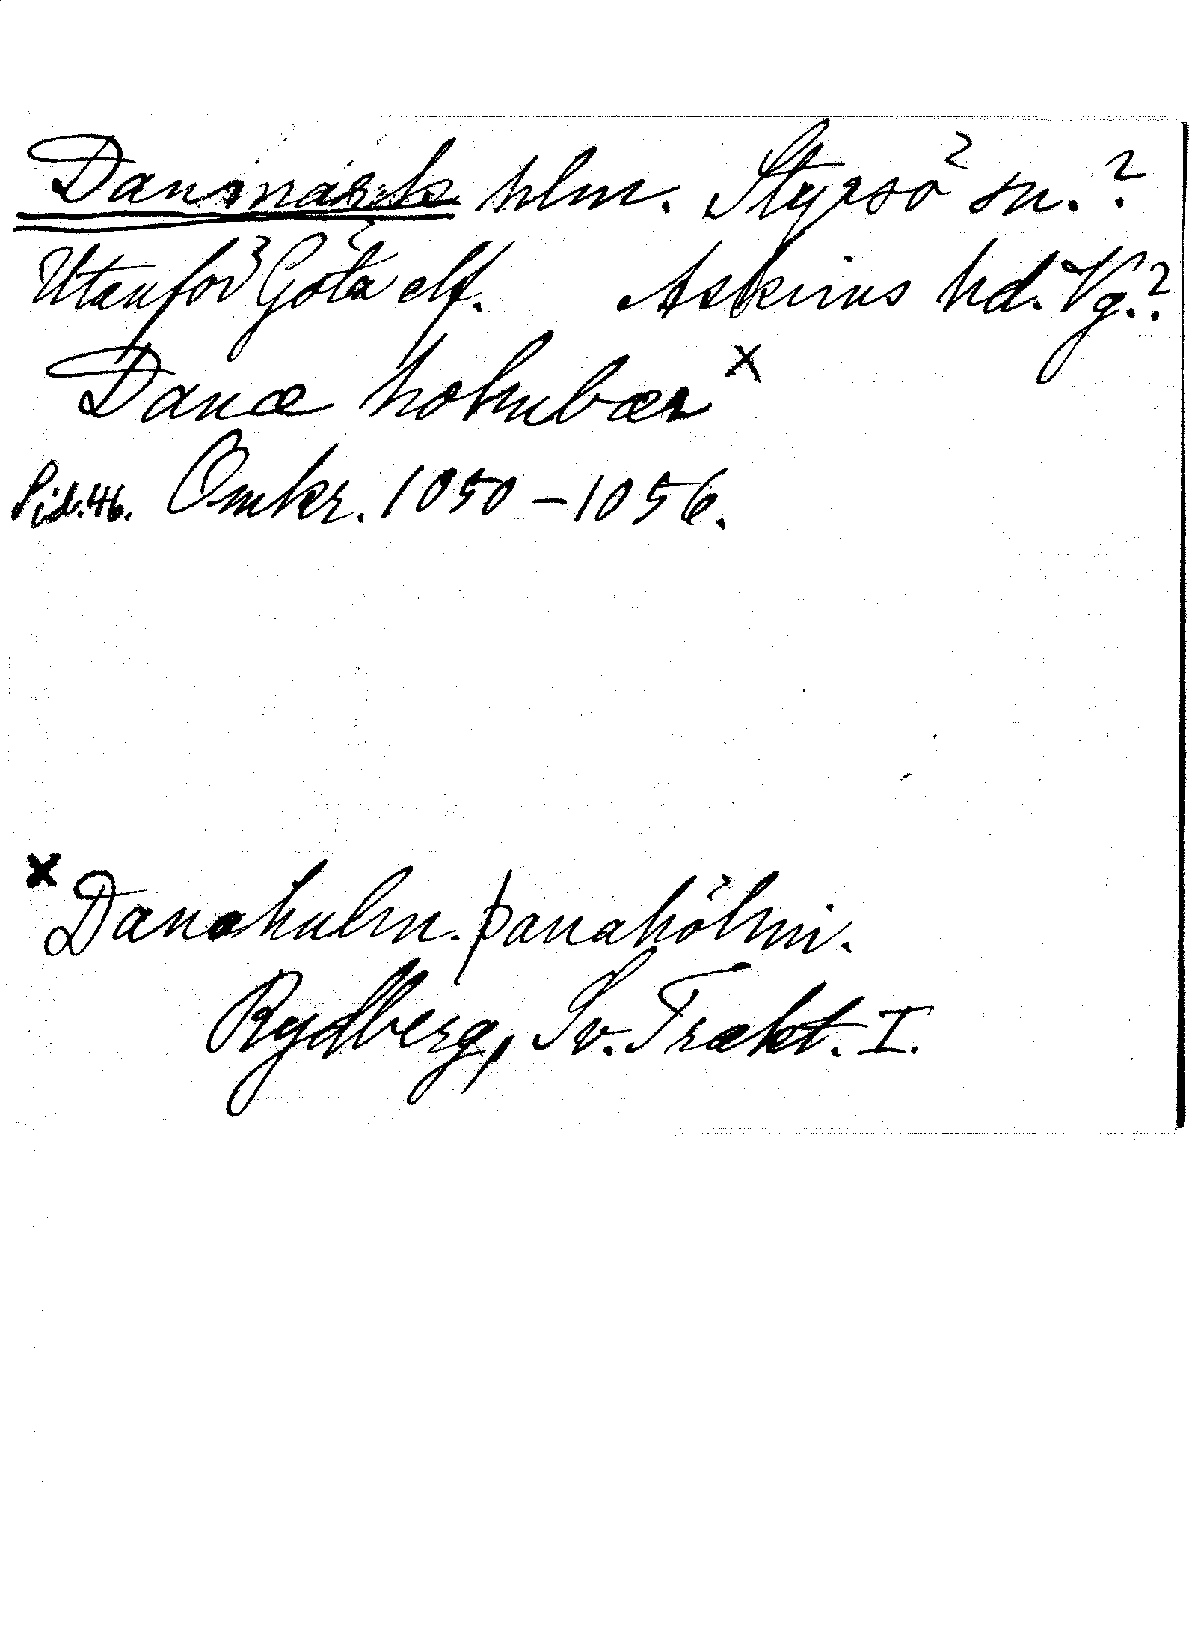 Danmark hlm. Styrsö sn.?
Utanför Göta elf. Askims hd. Vg.?
Danæ holmbær x
Sid. 46. Omkr. 1050–1056.
x Danaholm. þanahölmi.
Rydberg, Sv. Trakt. I.